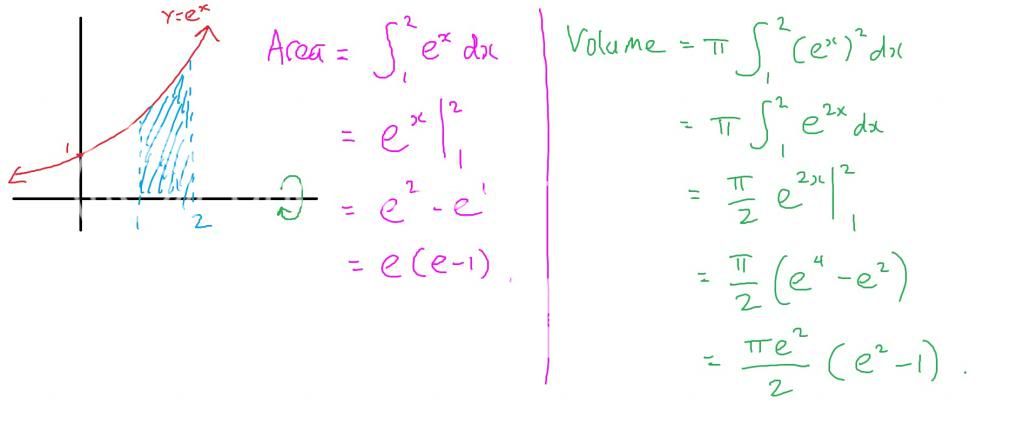 y=eˣ
1
1
2
Area = ∫₁² eˣ dx
= eˣ |₁²
= e² - e¹
= e(e-1).
Volume = π ∫₁² (eˣ)² dx
= π ∫₁² e²ˣ dx
= π/2 e²ˣ |₁²
= π/2 (e⁴ - e²)
= πe²/2 (e² - 1).